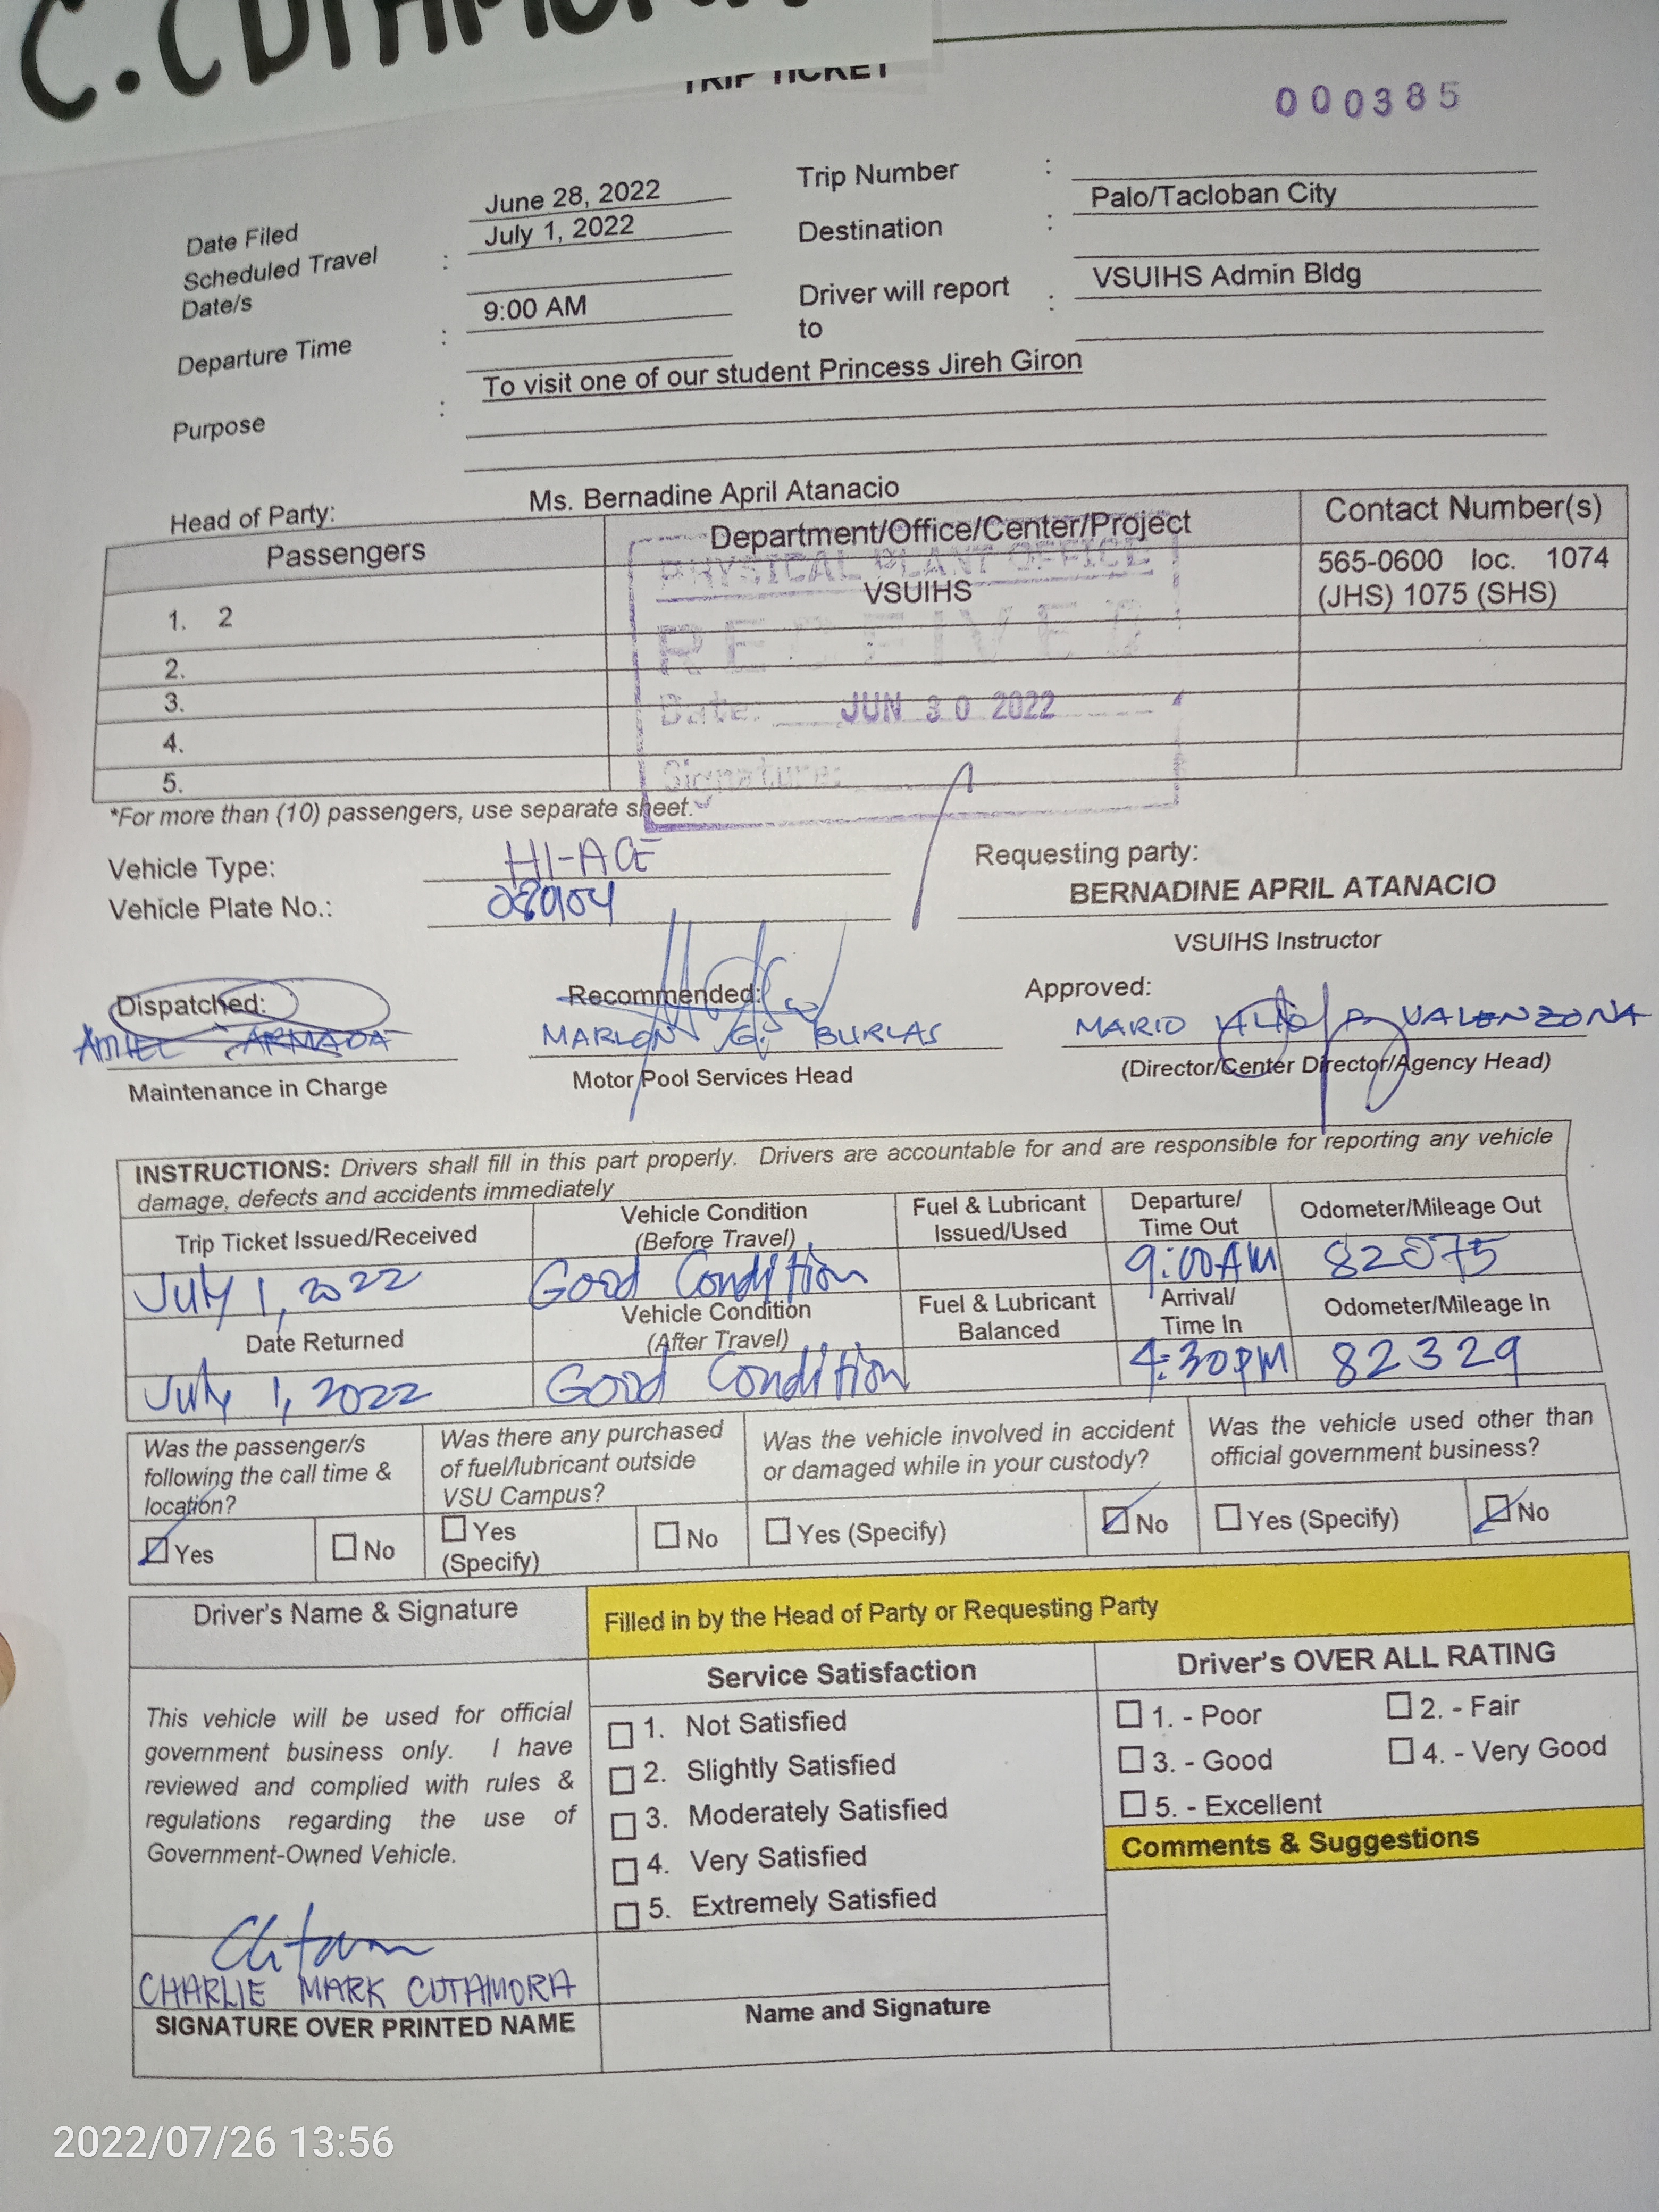 C. CUTAMORA
TRIP TICKET
000385
Date Filed June 28, 2022 Trip Number :
Scheduled Travel Date/s : July 1, 2022 Destination : Palo/Tacloban City
Departure Time : 9:00 AM Driver will report to : VSUIHS Admin Bldg
Purpose : To visit one of our student Princess Jireh Giron
Head of Party: Ms. Bernadine April Atanacio
Passengers Department/Office/Center/Project Contact Number(s)
1. 2 VSUIHS 565-0600 loc. 1074
(JHS) 1075 (SHS)
2.
3.
4.
5.
PHYSICAL PLANT OFFICE
RECEIVED
Date: JUN 30 2022
Signature:
*For more than (10) passengers, use separate sheet.
Vehicle Type: HI-ACE Requesting party:
Vehicle Plate No.: BERNADINE APRIL ATANACIO
VSUIHS Instructor
Dispatched: Recommended: Approved:
ARMADA MARLON G. BURLAS MARIO LILIO P. VALENZONA
Maintenance in Charge Motor Pool Services Head (Director/Center Director/Agency Head)
INSTRUCTIONS: Drivers shall fill in this part properly. Drivers are accountable for and are responsible for reporting any vehicle
damage, defects and accidents immediately
Trip Ticket Issued/Received Vehicle Condition (Before Travel) Fuel & Lubricant Issued/Used Departure/ Time Out Odometer/Mileage Out
July 1, 2022 Good Condition 9:00AM 82075
Date Returned Vehicle Condition (After Travel) Fuel & Lubricant Balanced Arrival/ Time In Odometer/Mileage In
July 1, 2022 Good Condition 4:30PM 82329
Was the passenger/s following the call time & location? Was there any purchased of fuel/lubricant outside VSU Campus? Was the vehicle involved in accident or damaged while in your custody? Was the vehicle used other than official government business?
Yes No Yes (Specify) No Yes (Specify) No Yes (Specify) No
Driver's Name & Signature Filled in by the Head of Party or Requesting Party
Service Satisfaction Driver's OVER ALL RATING
This vehicle will be used for official
government business only. I have
reviewed and complied with rules &
regulations regarding the use of
Government-Owned Vehicle.
1. Not Satisfied
2. Slightly Satisfied
3. Moderately Satisfied
4. Very Satisfied
5. Extremely Satisfied
1. - Poor 2. - Fair
3. - Good 4. - Very Good
5. - Excellent
Comments & Suggestions
CHARLIE MARK CUTAMORA
SIGNATURE OVER PRINTED NAME Name and Signature
2022/07/26 13:56